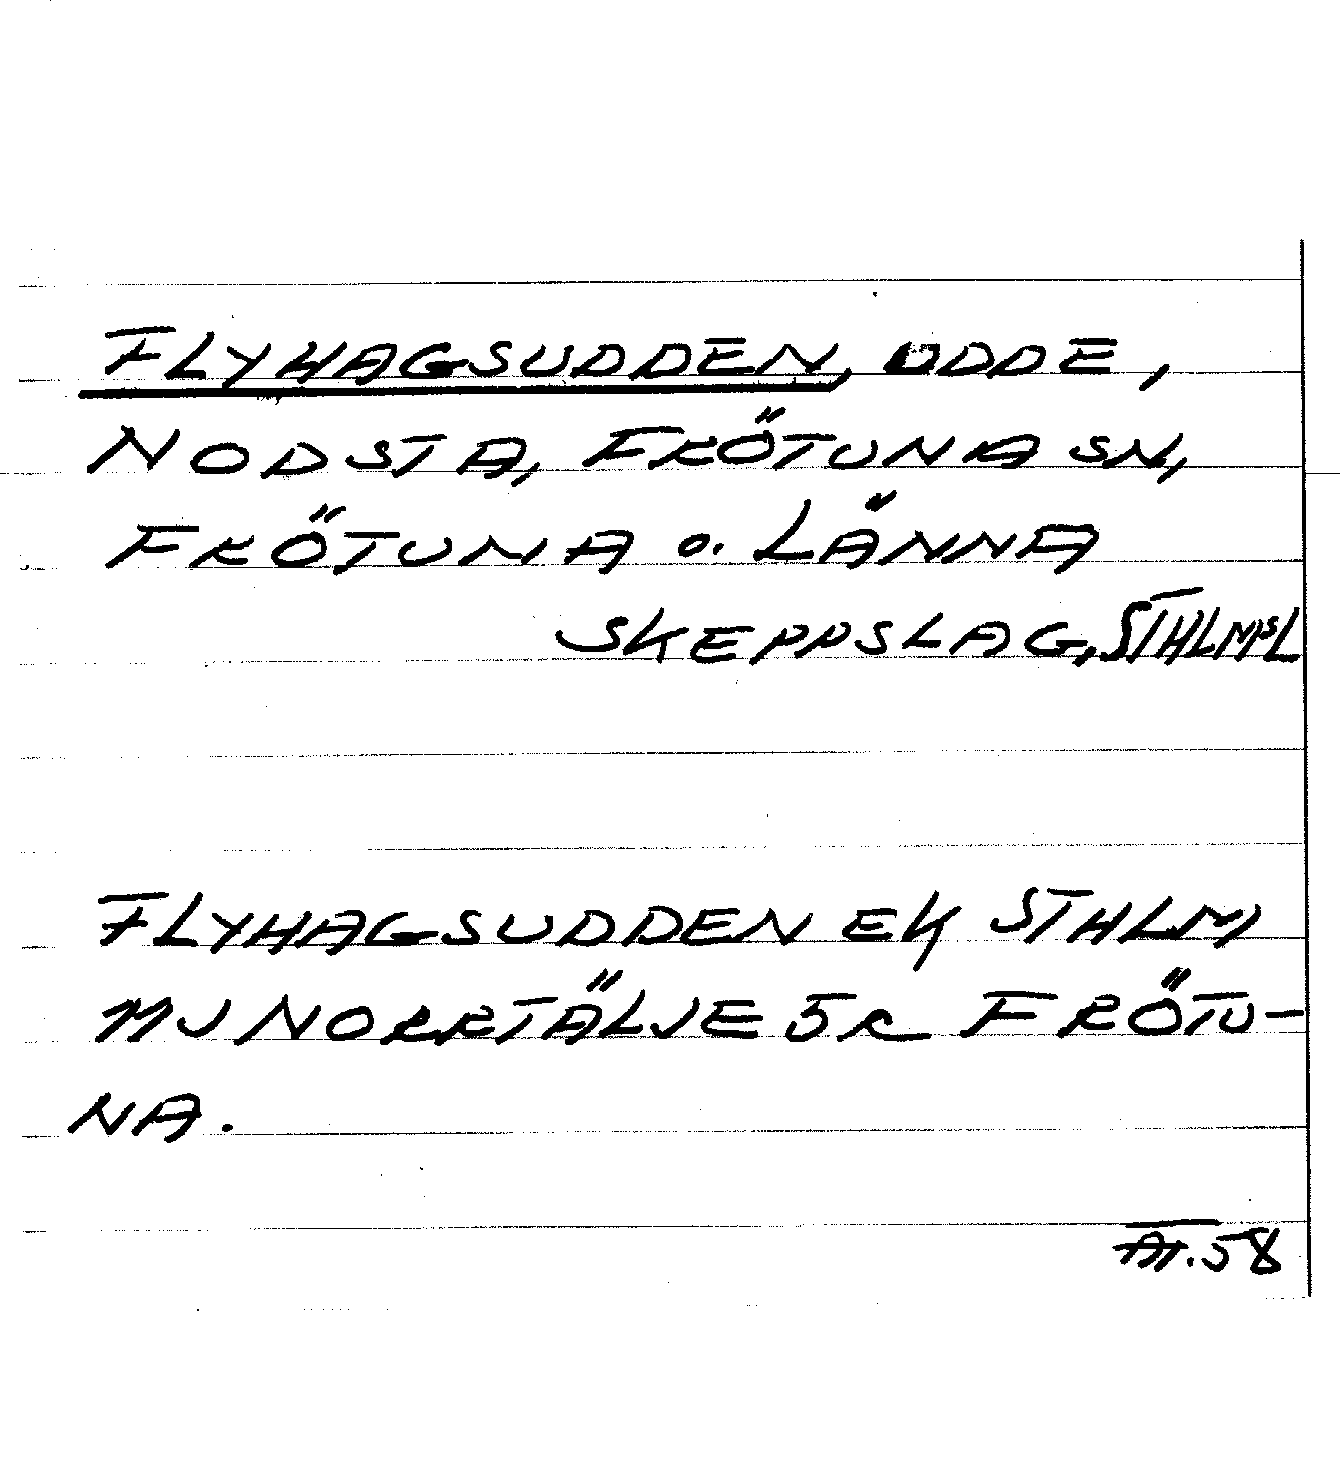 FLYHAGSUDDEN, UDDE,
NODSTA, FRÖTUNA SN,
FRÖTUNA o. LÄNNA
SKEPPSLAG, STHLMSL
FLYHAGSUDDEN EK STHLM
11J NORRTÄLJE 5c FRÖTU-
NA.
58